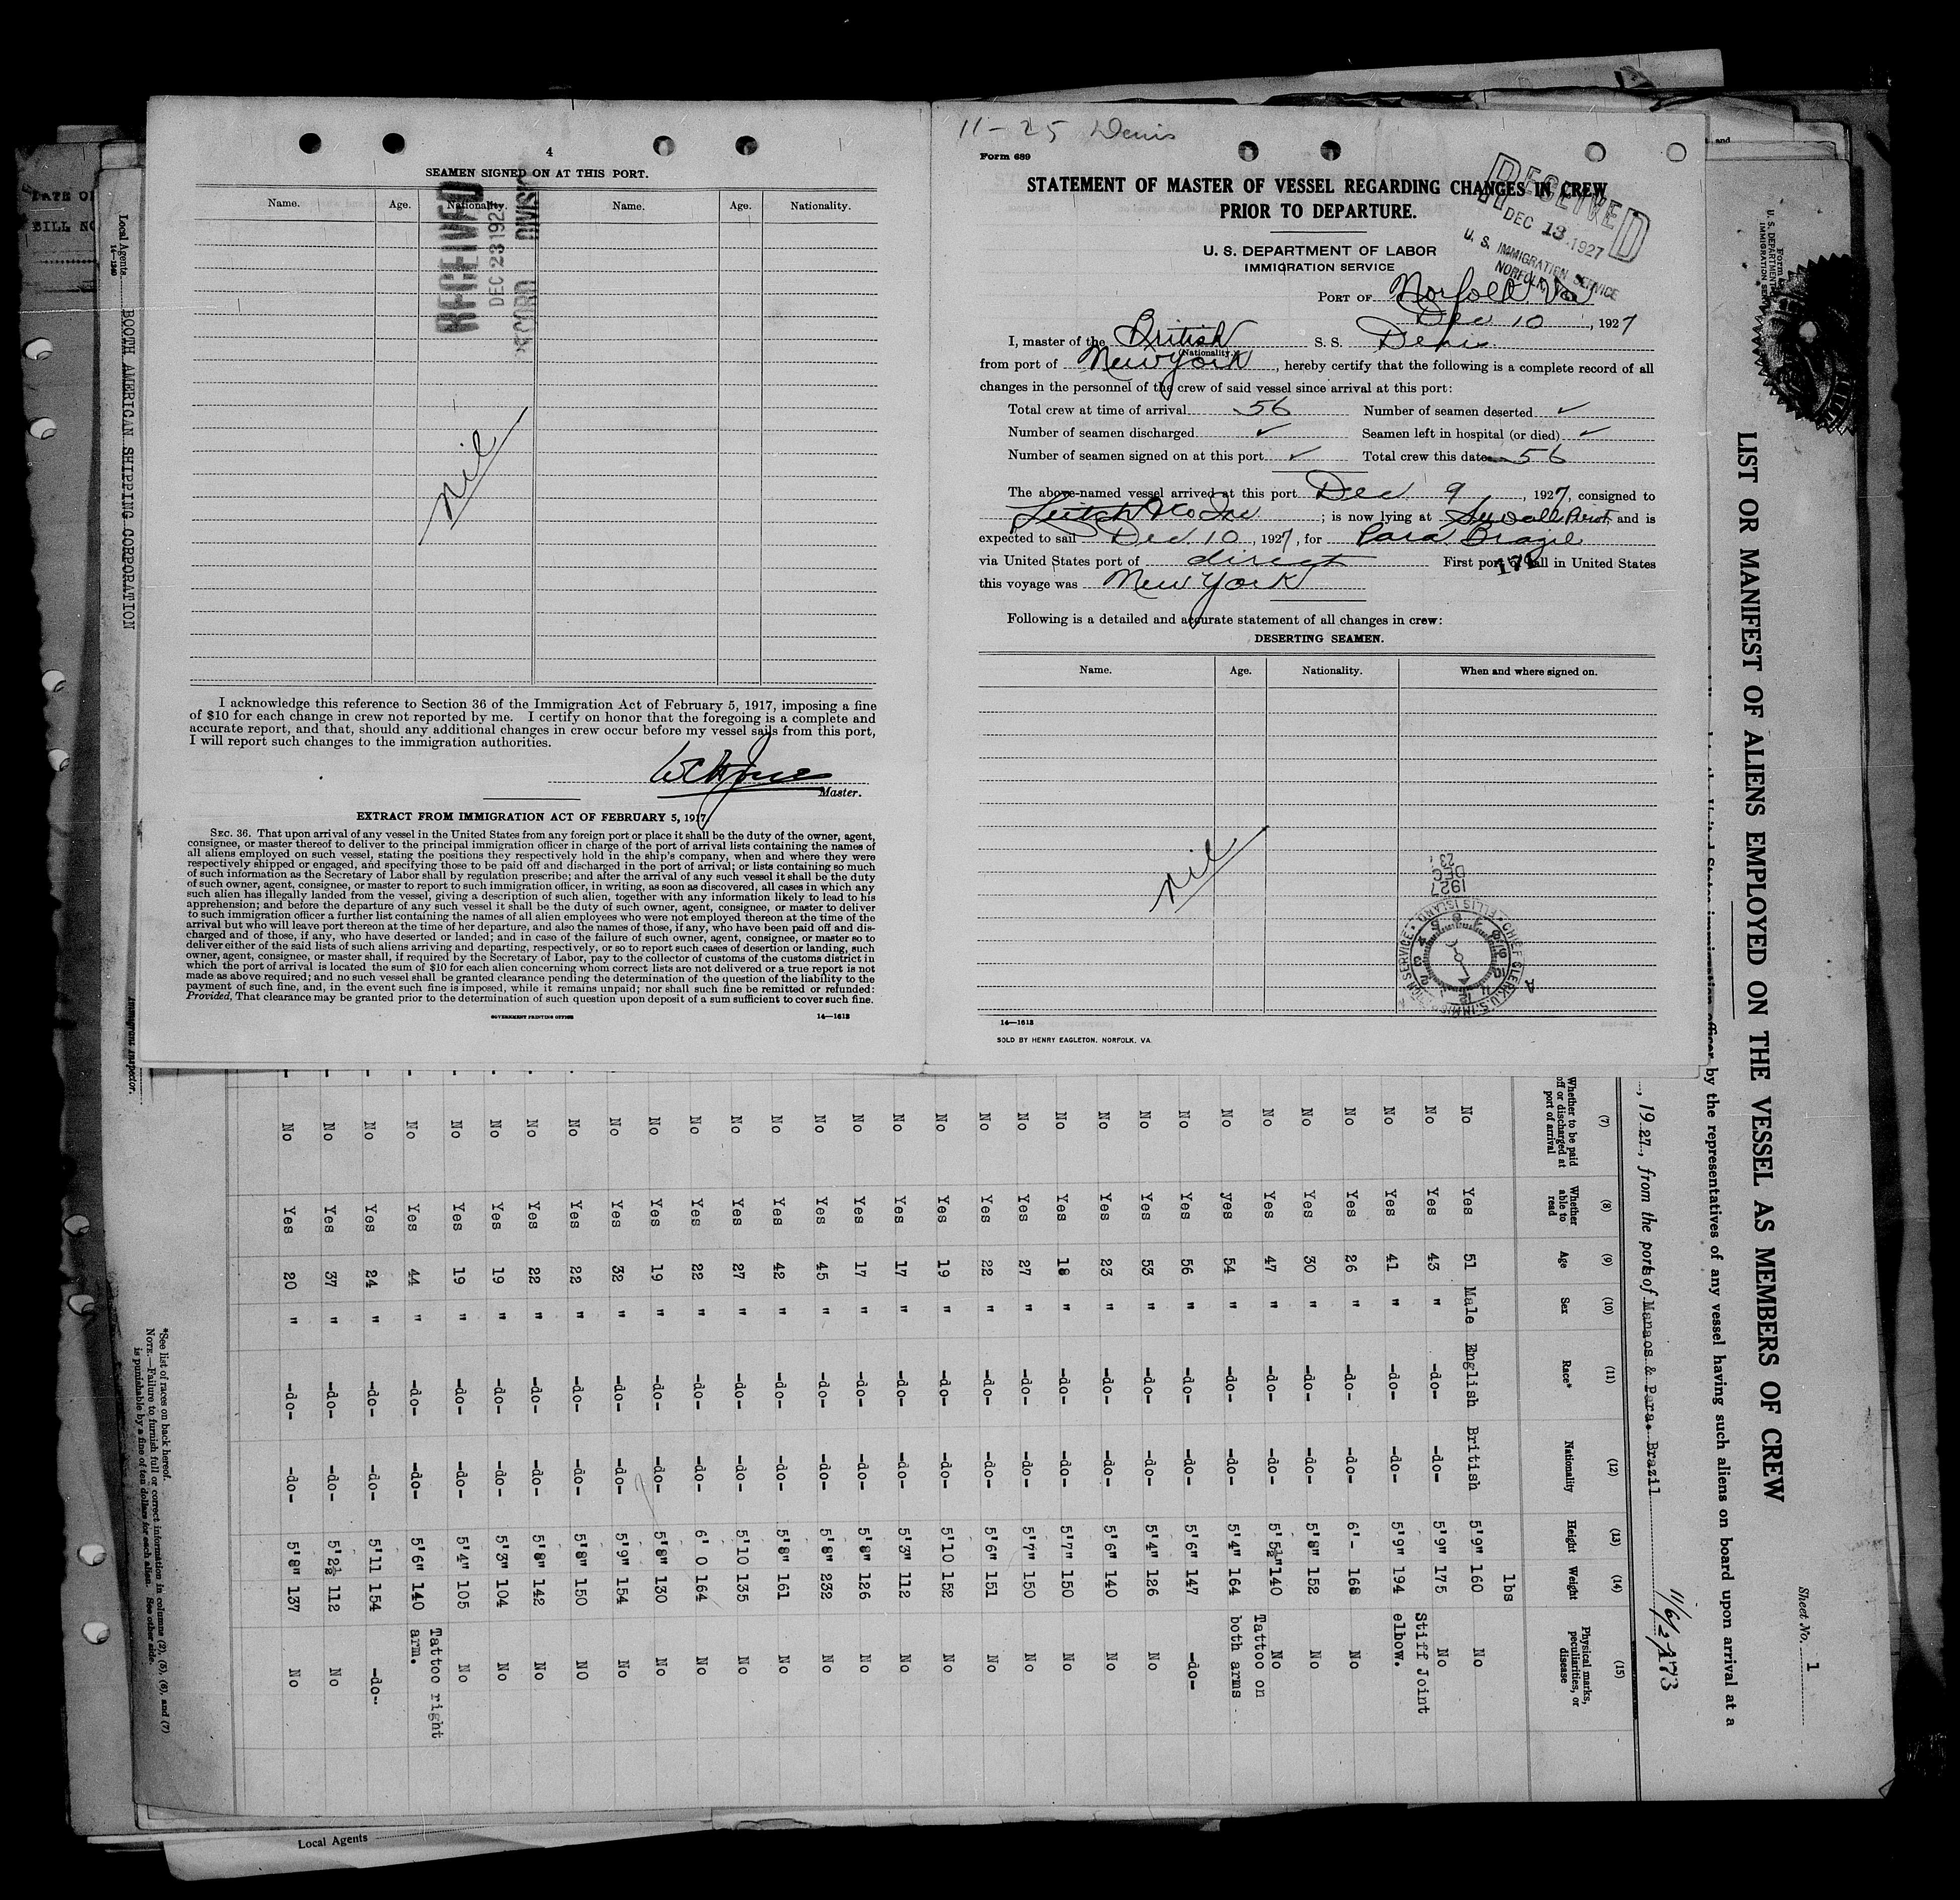 4
SEAMEN SIGNED ON AT THIS PORT.
Name. Age. Nationality. Name. Age. Nationality.
RECEIVED
DEC 23 192
RECORD DIVISI
nil
I acknowledge this reference to Section 36 of the Immigration Act of February 5, 1917, imposing a fine
of $10 for each change in crew not reported by me. I certify on honor that the foregoing is a complete and
accurate report, and that, should any additional changes in crew occur before my vessel sails from this port,
I will report such changes to the immigration authorities.
Master.
EXTRACT FROM IMMIGRATION ACT OF FEBRUARY 5, 1917
SEC. 36. That upon arrival of any vessel in the United States from any foreign port or place it shall be the duty of the owner, agent,
consignee, or master thereof to deliver to the principal immigration officer in charge of the port of arrival lists containing the names of
all aliens employed on such vessel, stating the positions they respectively hold in the ship's company, when and where they were
respectively shipped or engaged, and specifying those to be paid off and discharged in the port of arrival; or lists containing so much
of such information as the Secretary of Labor shall by regulation prescribe; and after the arrival of any such vessel it shall be the duty
of such owner, agent, consignee, or master to report to such immigration officer, in writing, as soon as discovered, all cases in which any
such alien has illegally landed from the vessel, giving a description of such alien, together with any information likely to lead to his
apprehension; and before the departure of any such vessel it shall be the duty of such owner, agent, consignee, or master to deliver
to such immigration officer a further list containing the names of all alien employees who were not employed thereon at the time of the
arrival but who will leave port thereon at the time of her departure, and also the names of those, if any, who have been paid off and dis-
charged and of those, if any, who have deserted or landed; and in case of the failure of such owner, agent, consignee, or master so to
deliver either of the said lists of such aliens arriving and departing, respectively, or so to report such cases of desertion or landing, such
owner, agent, consignee, or master shall, if required by the Secretary of Labor, pay to the collector of customs of the customs district in
which the port of arrival is located the sum of $10 for each alien concerning whom correct lists are not delivered or a true report is not
made as above required; and no such vessel shall be granted clearance pending the determination of the question of the liability to the
payment of such fine, and, in the event such fine is imposed, while it remains unpaid; nor shall such fine be remitted or refunded:
Provided, That clearance may be granted prior to the determination of such question upon deposit of a sum sufficient to cover such fine.
GOVERNMENT PRINTING OFFICE 14—1613
11-25 Denis
Form 689
STATEMENT OF MASTER OF VESSEL REGARDING CHANGES IN CREW
PRIOR TO DEPARTURE.
RECEIVED
DEC 13 1927
U. S. IMMIGRATION SERVICE
NORFOLK, VA.
U. S. DEPARTMENT OF LABOR
IMMIGRATION SERVICE
PORT OF Norfolk Va
Dec 10, 1927
I, master of the British S. S. Denis
(Nationality.)
from port of New York, hereby certify that the following is a complete record of all
changes in the personnel of the crew of said vessel since arrival at this port:
Total crew at time of arrival 56 Number of seamen deserted ✓
Number of seamen discharged ✓ Seamen left in hospital (or died) ✓
Number of seamen signed on at this port ✓ Total crew this date 56
The above-named vessel arrived at this port Dec 9, 1927, consigned to
; is now lying at Sewalls Point, and is
expected to sail Dec 10, 1927, for Para Brazil
via United States port of direct First port of call in United States
171
this voyage was New York
Following is a detailed and accurate statement of all changes in crew:
DESERTING SEAMEN.
Name. Age. Nationality. When and where signed on.
nil
1927
DEC
23
CHIEF CLERK, U.S. IMMIGRATION SERVICE ELLIS ISLAND
14—1613
SOLD BY HENRY EAGLETON, NORFOLK, VA.
DATE OF
BILL NO
Local Agents
14—1240
BOOTH AMERICAN SHIPPING CORPORATION
Immigrant Inspector.
Sheet No. 1
Form
U. S. DEPARTMENT
IMMIGRATION SERV
LIST OR MANIFEST OF ALIENS EMPLOYED ON THE VESSEL AS MEMBERS OF CREW
by the representatives of any vessel having such aliens on board upon arrival at a
, 1927, from the ports of Manaos & Para. Brazil
(7) (8) (9) (10) (11) (12) (13) (14) (15)
Whether to be paid off or discharged at port of arrival Whether able to read Age Sex Race* Nationality Height Weight Physical marks, peculiarities, or disease
lbs
No Yes 51 Male English British 5'9" 160 No
No Yes 43 " -do- -do- 5'9" 175 No
No Yes 41 " -do- -do- 5'9" 194 Stiff Joint elbow.
No Yes 26 " -do- -do- 6'- 168 No
No Yes 30 " -do- -do- 5'8" 152 No
No Yes 47 " -do- -do- 5'5½" 140 No
No yes 54 " -do- -do- 5'4" 164 Tattoo on both arms
No Yes 56 " -do- -do- 5'6" 147 -do-
No Yes 53 " -do- -do- 5'4" 126 No
No Yes 23 " -do- -do- 5'6" 140 No
No Yes 18 " -do- -do- 5'7" 150 No
No Yes 27 " -do- -do- 5'7" 150 No
No Yes 22 " -do- -do- 5'6" 151 No
No Yes 19 " -do- -do- 5'10 152 No
No Yes 17 " -do- -do- 5'3" 112 No
No Yes 17 " -do- -do- 5'8" 126 No
No Yes 45 " -do- -do- 5'8" 232 No
No Yes 42 " -do- -do- 5'8" 161 No
No Yes 27 " -do- -do- 5'10 135 No
No Yes 22 " -do- -do- 6' 0 164 No
No Yes 19 " -do- -do- 5'8" 130 No
No Yes 32 " -do- -do- 5'9" 154 No
No Yes 22 " -do- -do- 5'8" 150 No
No Yes 22 " -do- -do- 5'8" 142 No
No Yes 19 " -do- -do- 5'3" 104 No
No Yes 19 " -do- -do- 5'4" 105 No
No Yes 44 " -do- -do- 5'6" 140 Tattoo right arm.
No Yes 24 " -do- -do- 5'11 154 -do-
No Yes 37 " -do- -do- 5'2½ 112 No
No Yes 20 " -do- -do- 5'8" 137 No
*See list of races on back hereof.
NOTE.—Failure to furnish full or correct information in columns (2), (5), (6), and (7)
is punishable by a fine of ten dollars for each alien. See other side.
Local Agents